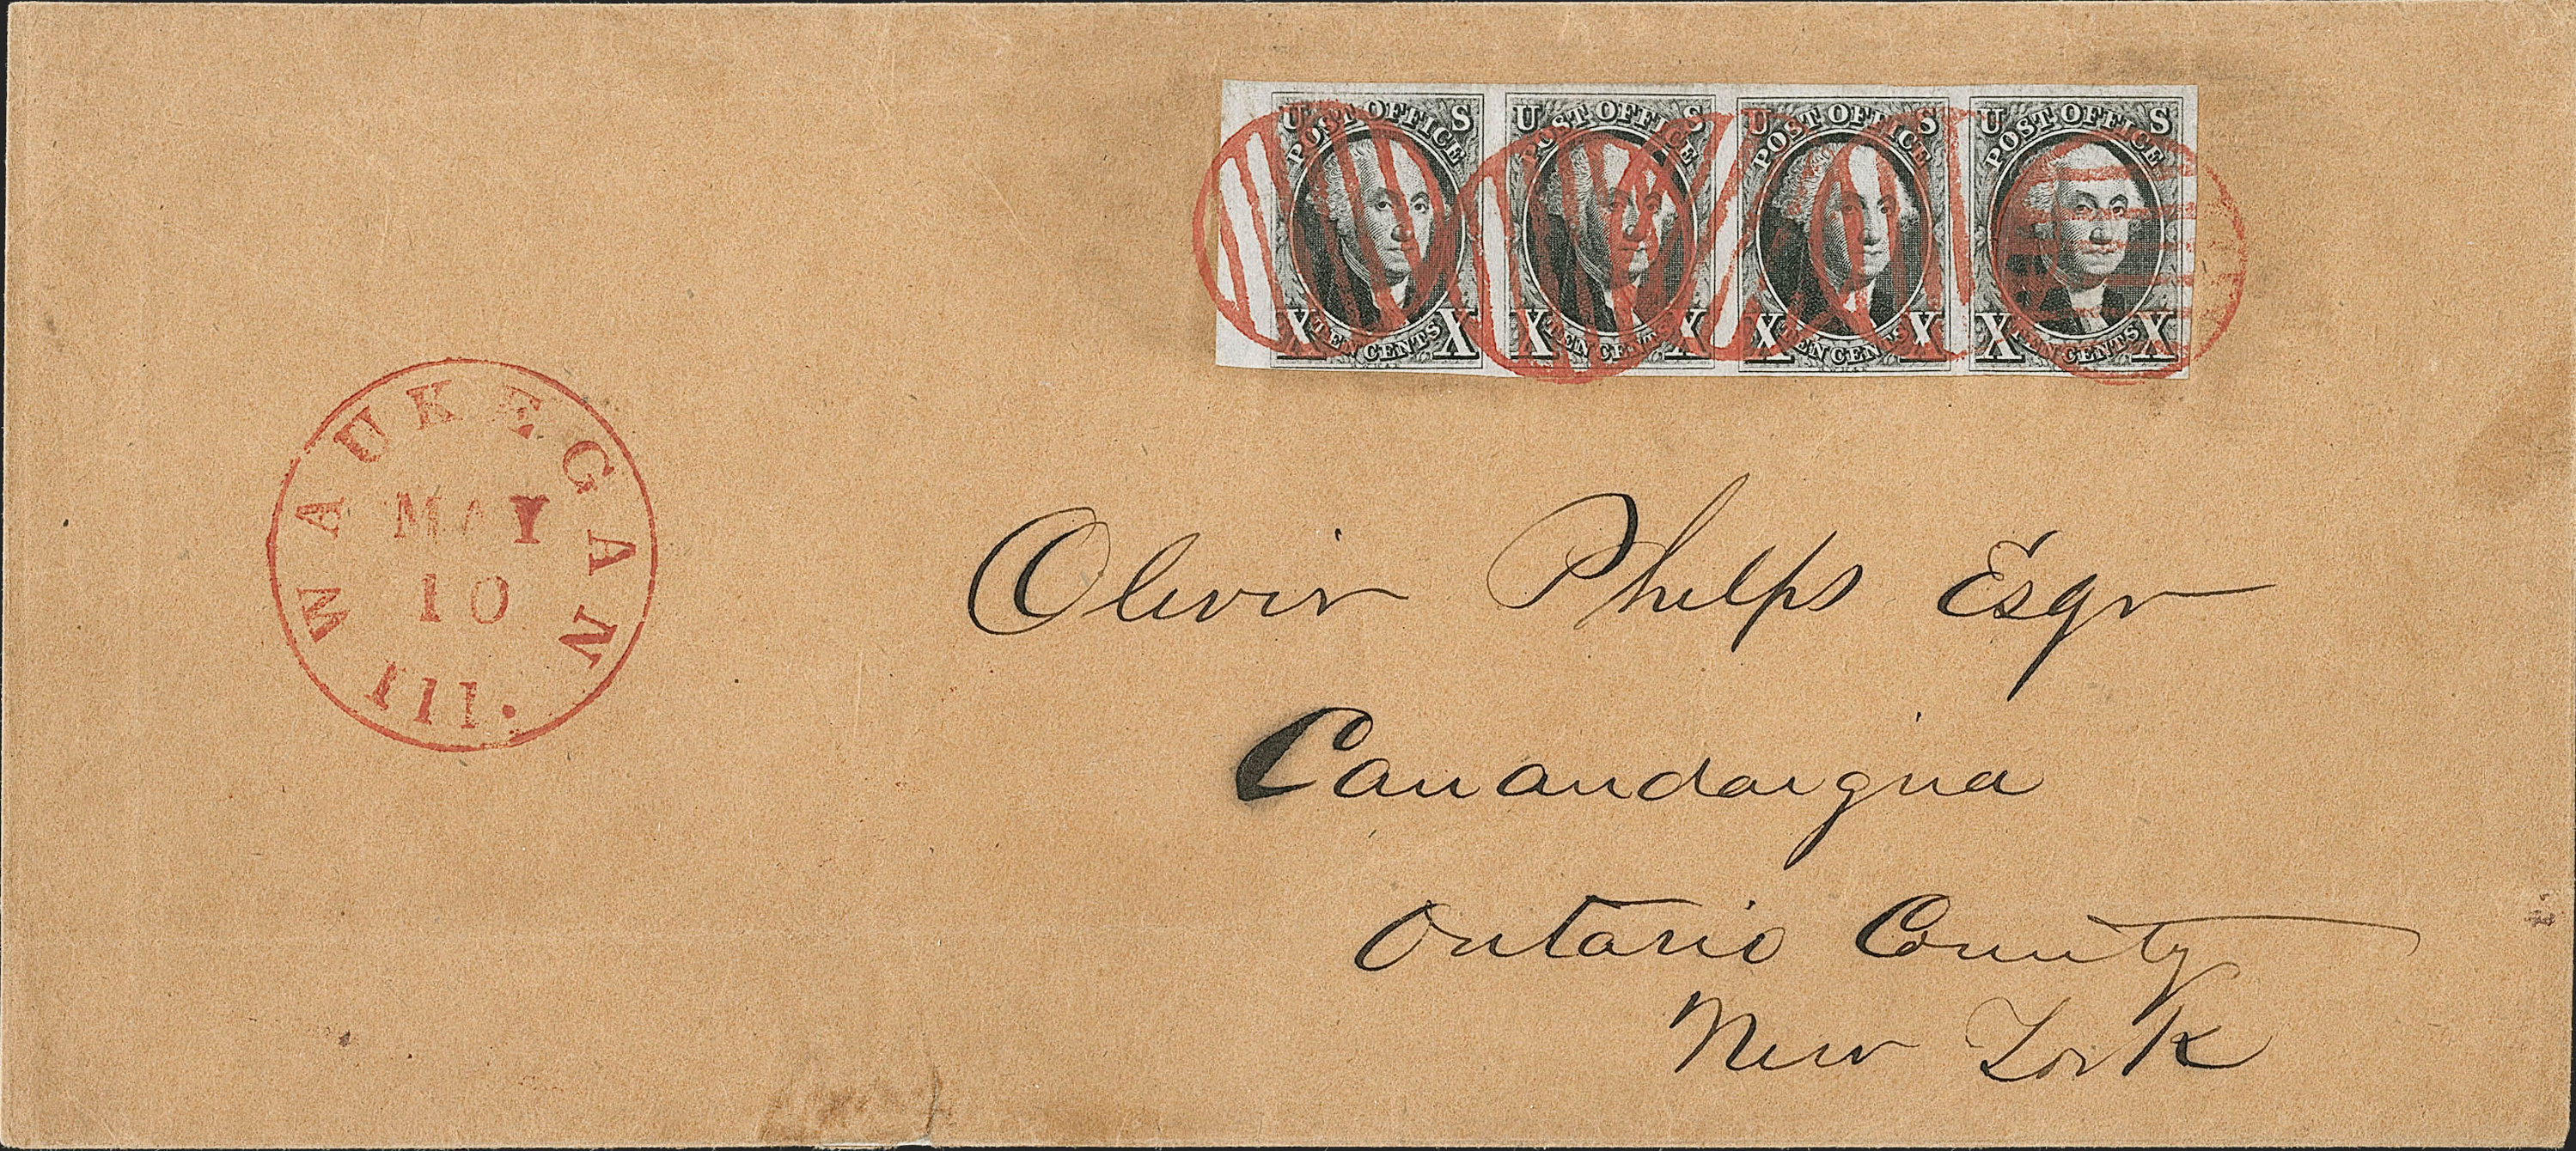 U S U S U S U S
POST OFFICE POST OFFICE POST OFFICE POST OFFICE
X TEN CENTS X X TEN CENTS X X TEN CENTS X X TEN CENTS X
WAUKEGAN
MAY
10
Ill.
Oliver Phelps Esqr
Canandaigua
Ontario County
New York